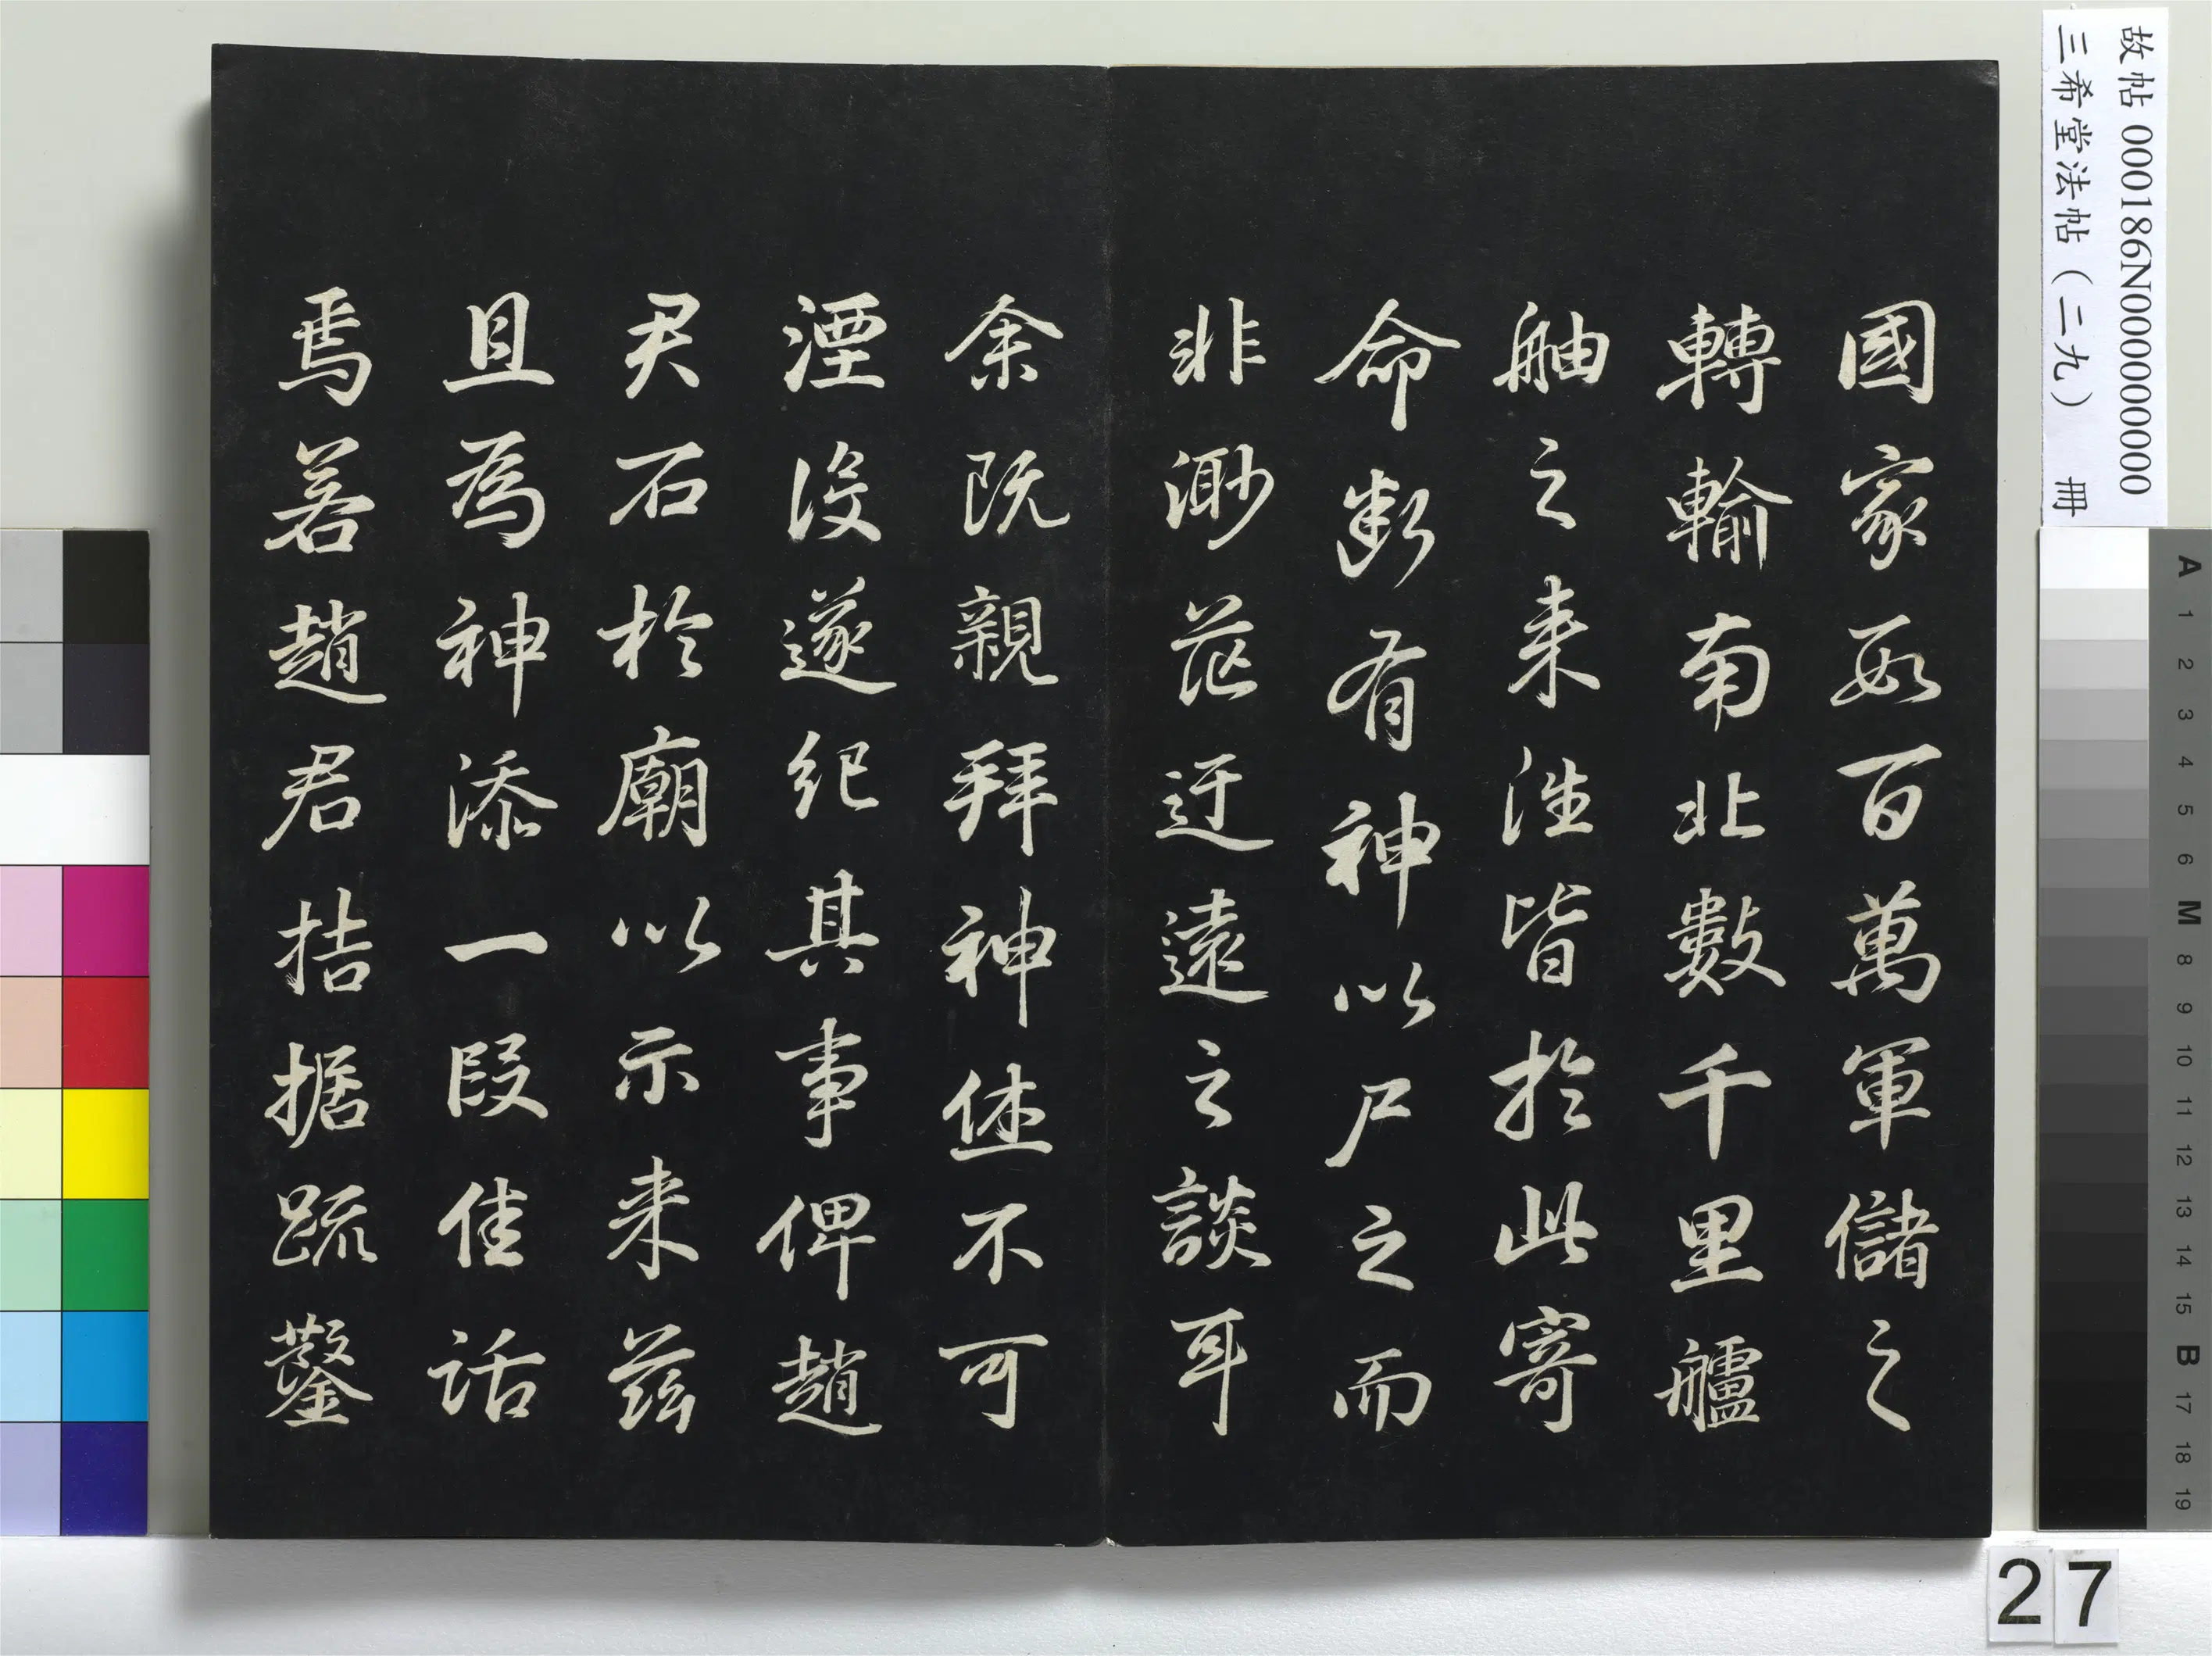 國家數百萬軍儲之
轉輸南北數千里艫
舳之来往皆於此寄
命斷有神以尸之而
非渺茫迂遠之談耳
余既親拜神俅不可
湮没遂紀其事俾趙
君石於廟以示来茲
且為神添一段佳話
焉若趙君拮据疏鑿
故帖 000186N000000000
三希堂法帖（二九） 冊
A 1 2 3 4 5 6 M 8 9 10 11 12 13 14 15 B 17 18 19
27